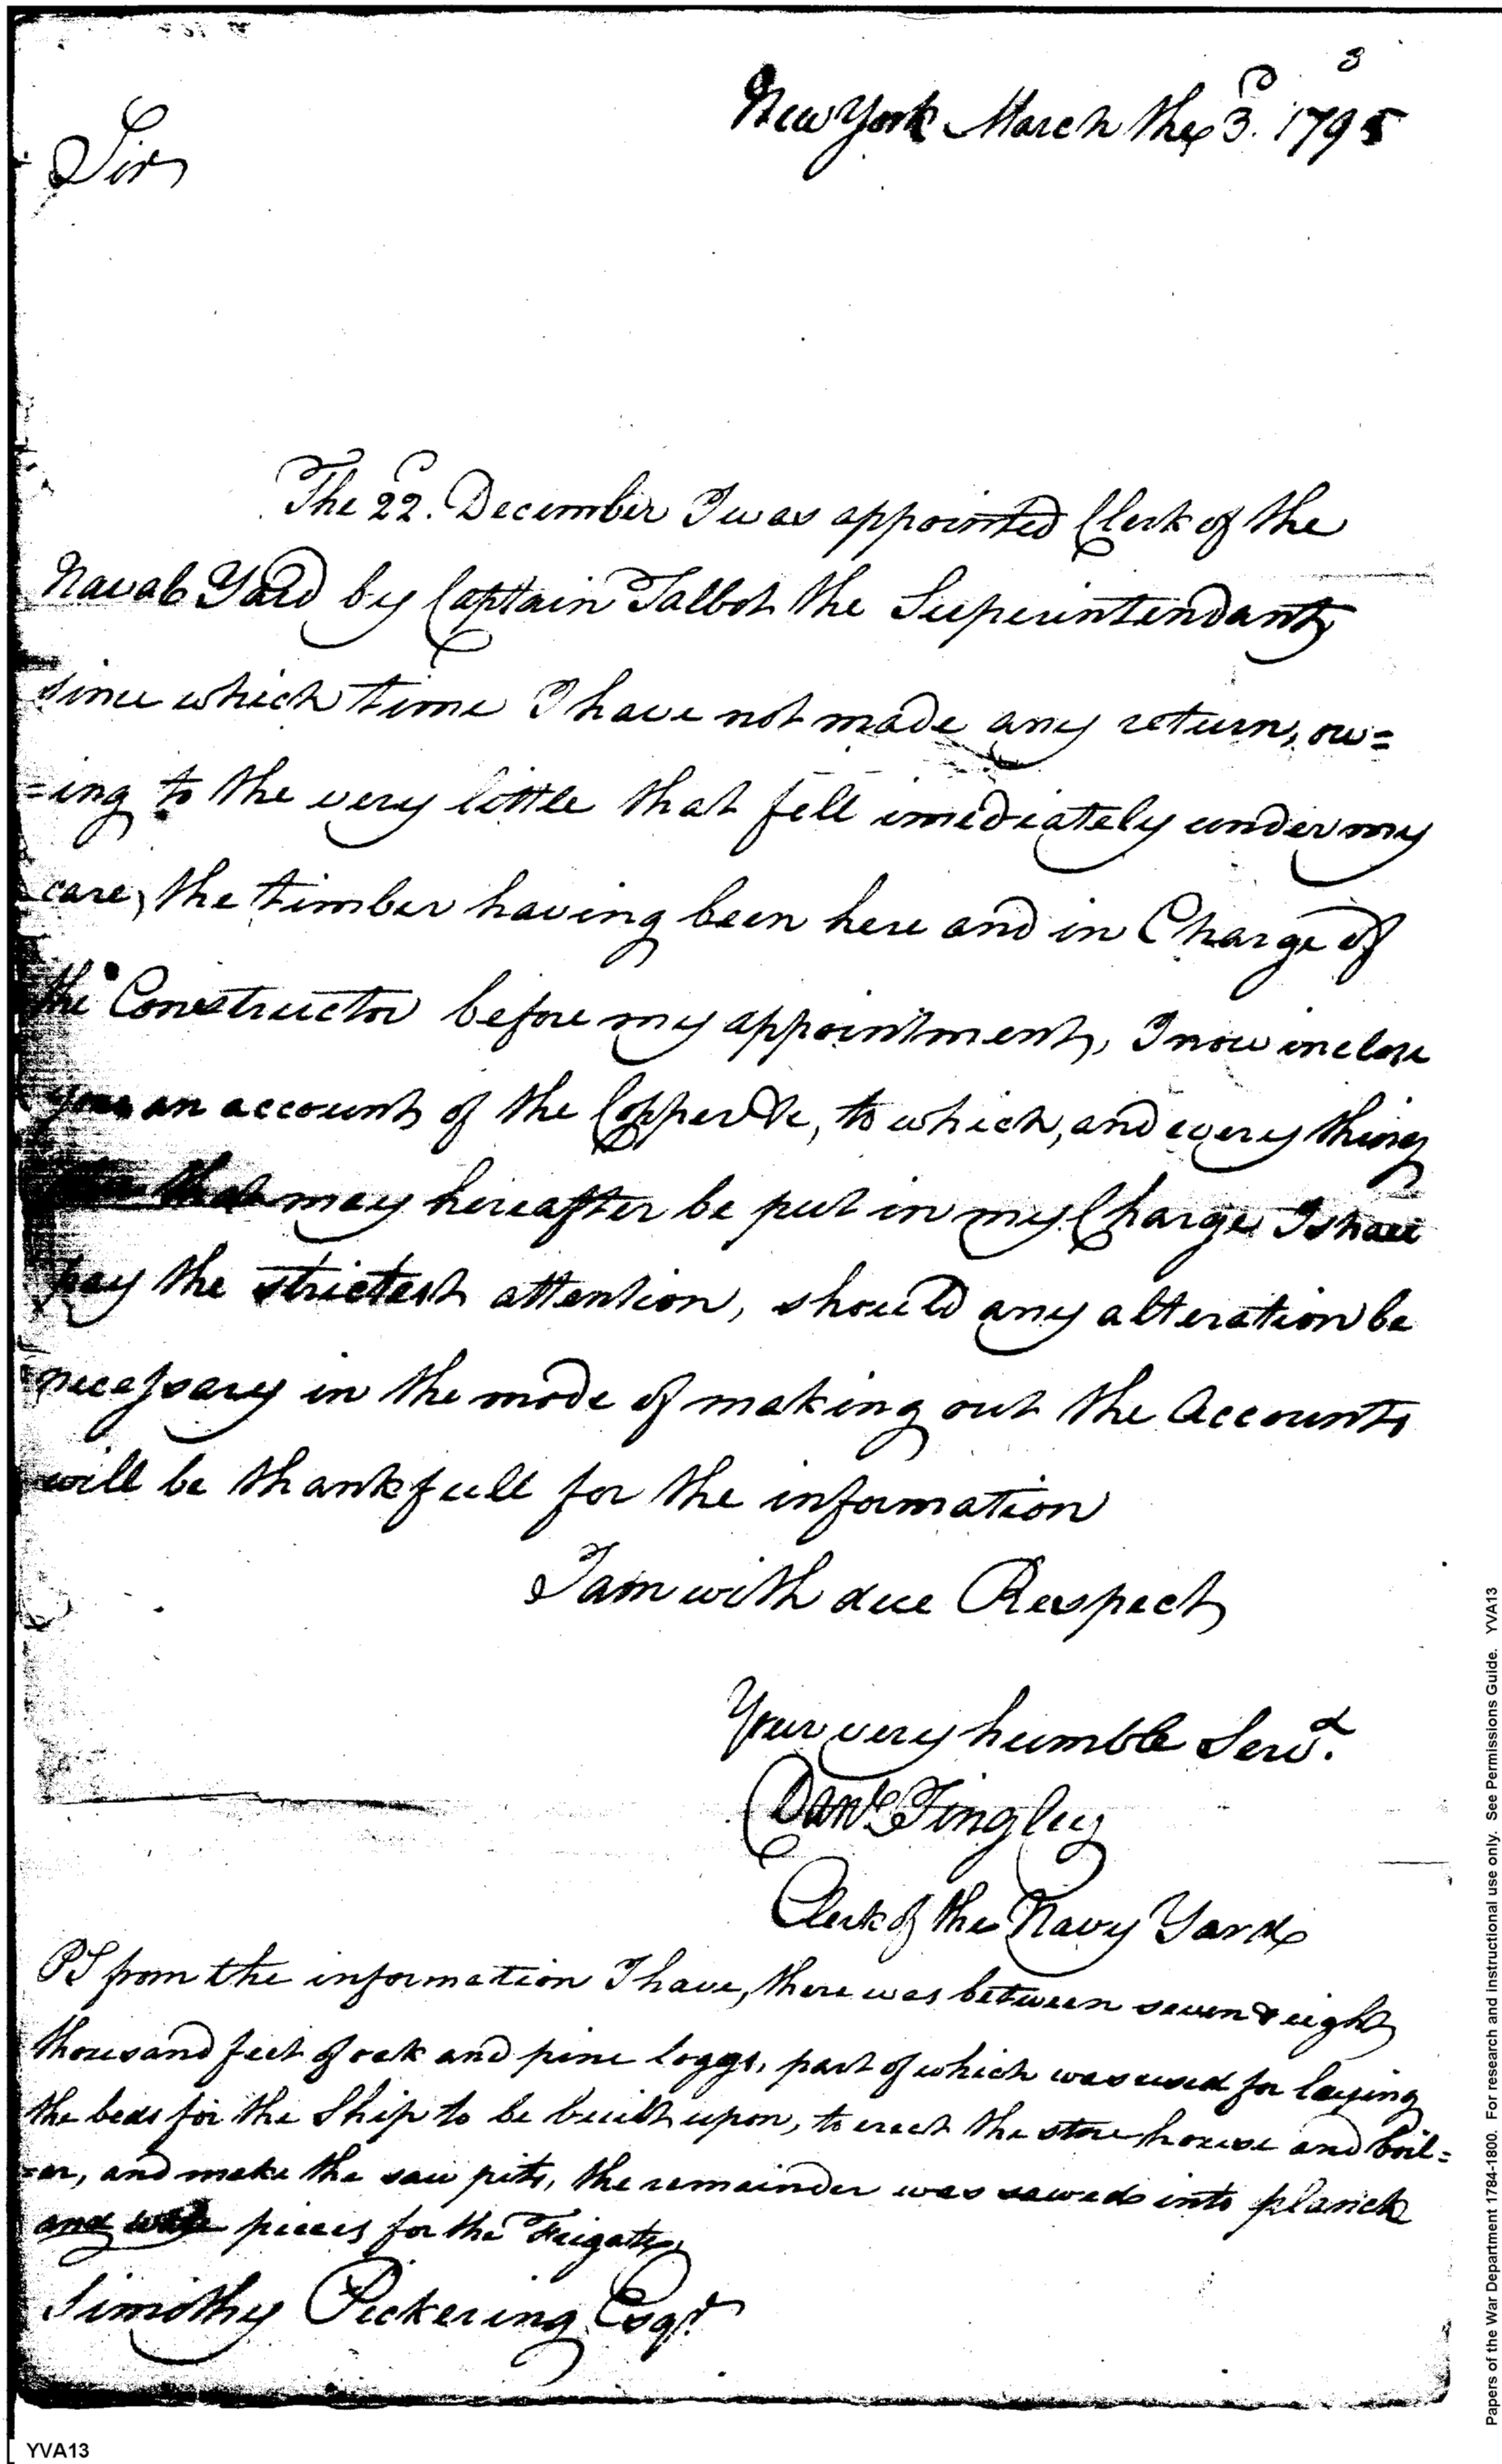 3
New York March the 3d. 1795
Sir
The 22d. December I was appointed Clerk of the
Naval Yard by Captain Talbot the Superintendant
since which time I have not made any return, ow=
=ing to the very little that fell imediately under my
care, the timber having been here and in Charge of
the Constructor before my appointment, I now inclose
you an account of the Copper &c, to which, and every thing
that may hereafter be put in my Charge I shall
pay the strictest attention, should any alteration be
necessary in the mode of making out the Accounts
will be thankfull for the information
I am with due Respect
Your very humble Servt.
Danl Tingley
Clerk of the Navy Yard
PS from the information I have, there was between seven & eight
thousand feet of oak and pine loggs, part of which was used for laying
the beds for the Ship to be built upon, to erect the store house and boil=
=er, and make the saw pits, the remainder was sawed into planck
and pieces for the Frigate,
Timothy Pickering Esqr.
YVA13
Papers of the War Department 1784-1800. For research and instructional use only. See Permissions Guide. YVA13